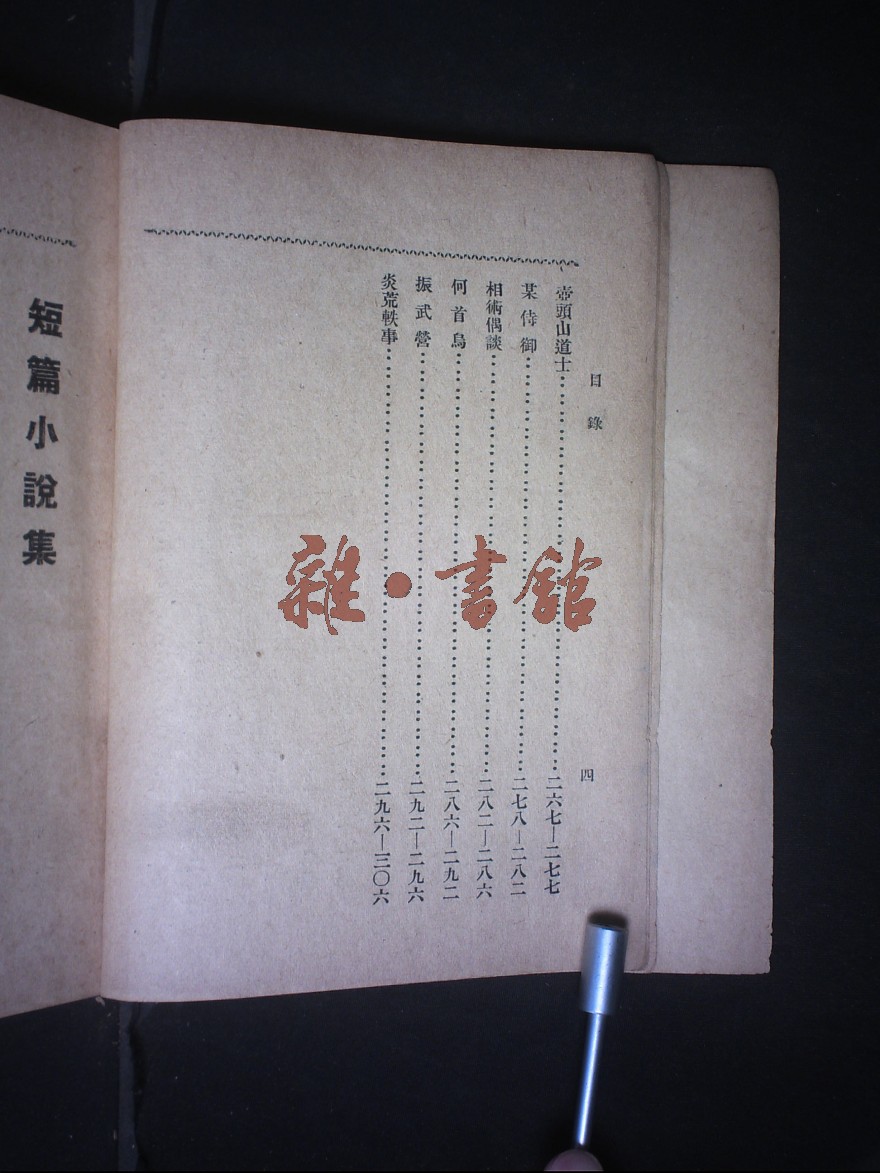 目錄 四
壺頭山道士……二六七—二七七
某侍御……二七八—二八二
相術偶談……二八二—二八六
何首烏……二八六—二九二
振武營……二九二—二九六
炎荒軼事……二九六—三〇六
短篇小說集
雜•書館